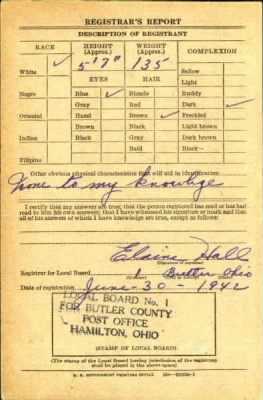 REGISTRAR'S REPORT
DESCRIPTION OF REGISTRANT
RACE HEIGHT (Approx.) WEIGHT (Approx.) COMPLEXION
White ✓ 5'7" 135 Sallow
Light
EYES HAIR
Negro Blue ✓ Blonde Ruddy
Gray Red Dark ✓
Oriental Hazel Brown ✓ Freckled
Brown Black Light brown
Indian Black Gray Dark brown
Bald Black
Filipino
Other obvious physical characteristics that will aid in identification
None to my knowlege
I certify that my answers are true; that the person registered has read or has had
read to him his own answers; that I have witnessed his signature or mark and that
all of his answers of which I have knowledge are true, except as follows:
Elaine Hall
(Signature of registrar)
Registrar for Local Board 1 Butler Ohio
Date of registration June-30-1942
LOCAL BOARD No. 1
FOR BUTLER COUNTY
POST OFFICE
HAMILTON, OHIO
(STAMP OF LOCAL BOARD)
(The stamp of the Local Board having jurisdiction of the registrant
shall be placed in the above space.)
U. S. GOVERNMENT PRINTING OFFICE